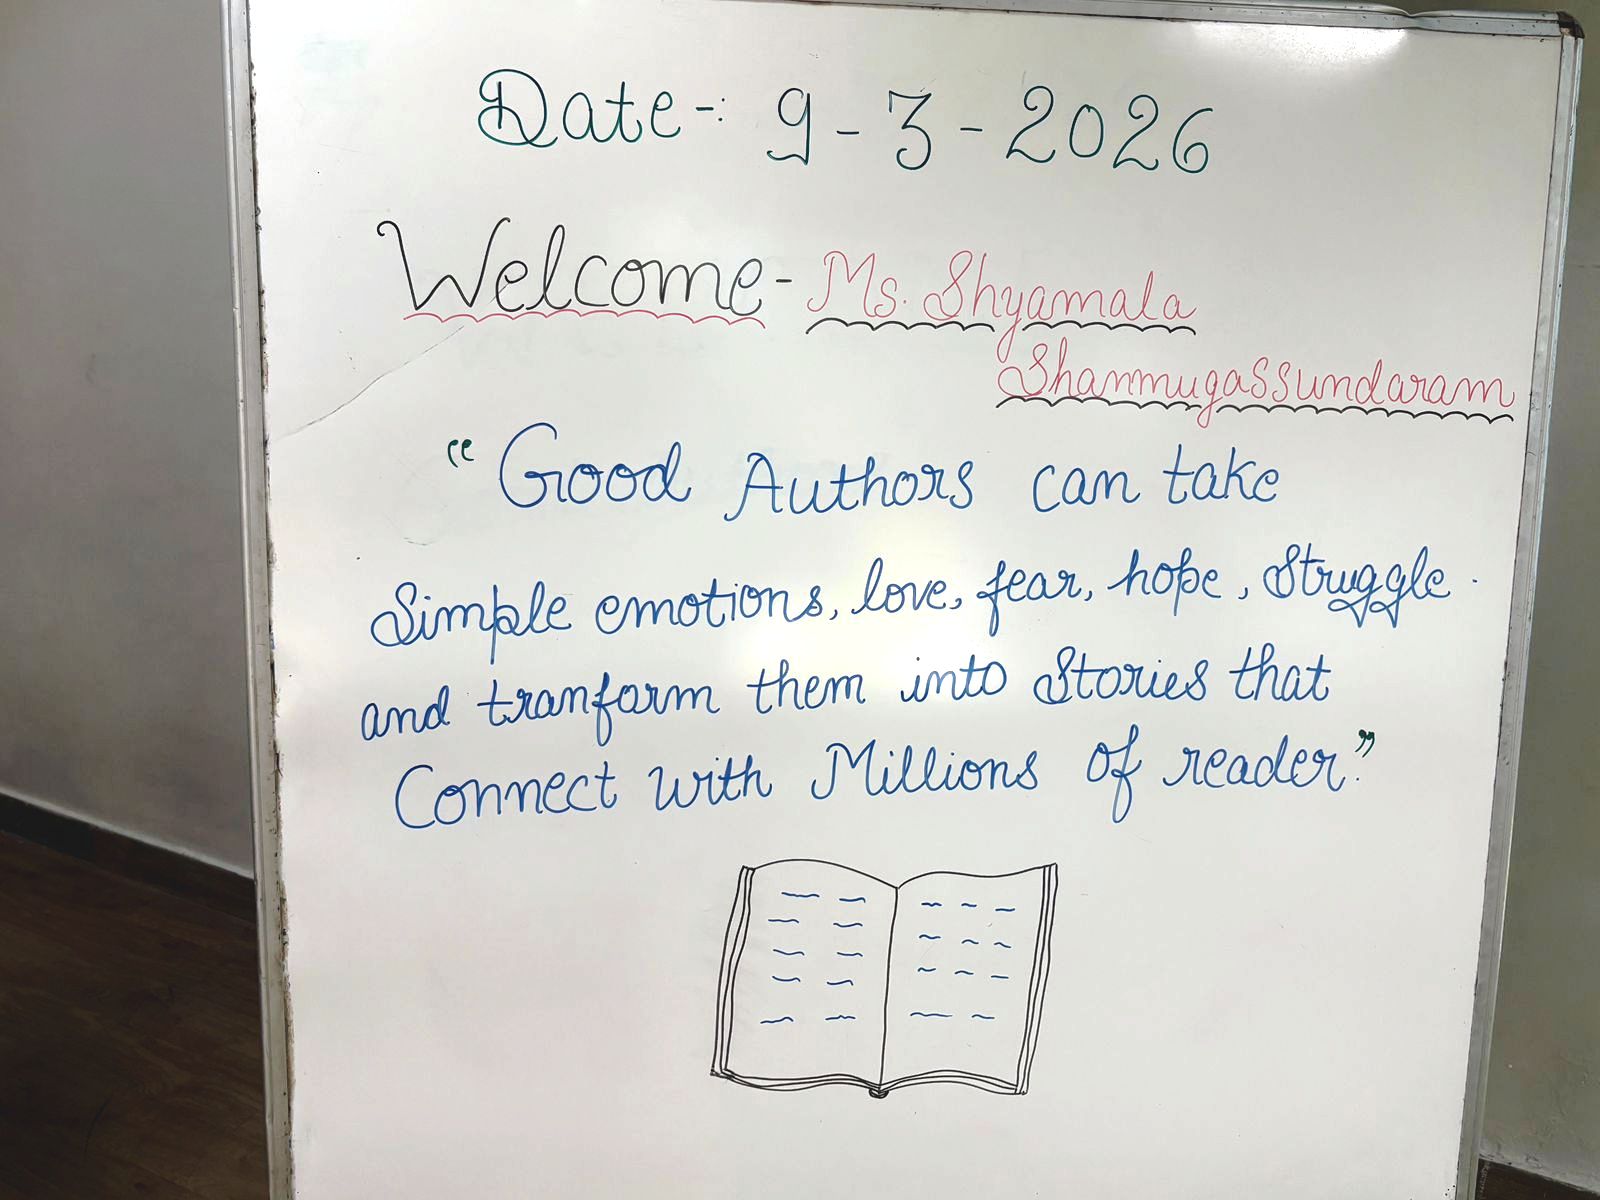 Date-: 9-3-2026
Welcome- Ms. Shyamala
Shanmugassundaram
“Good Authors can take
Simple emotions, love, fear, hope, Struggle.
and tranform them into Stories that
Connect with Millions of reader.”